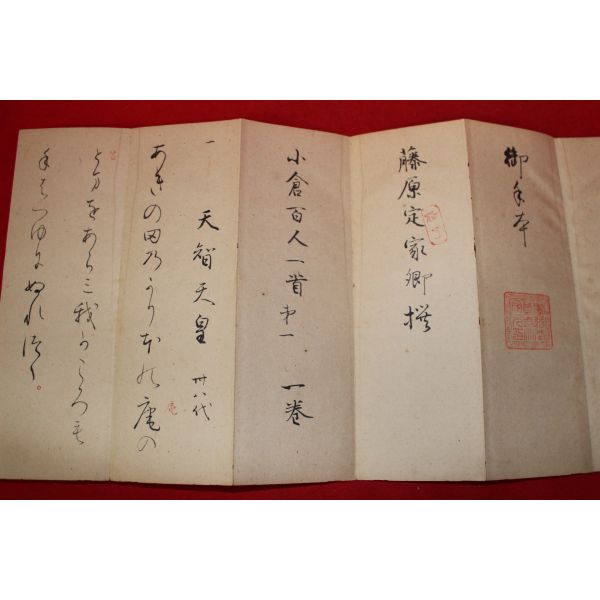 御手本
藤原定家卿撰
小倉百人一首第一 一巻
一 天智天皇 卅八代
あきの田乃かりほの庵の
庵
とまをあら三我かころも
手はつゆにぬれつゝ